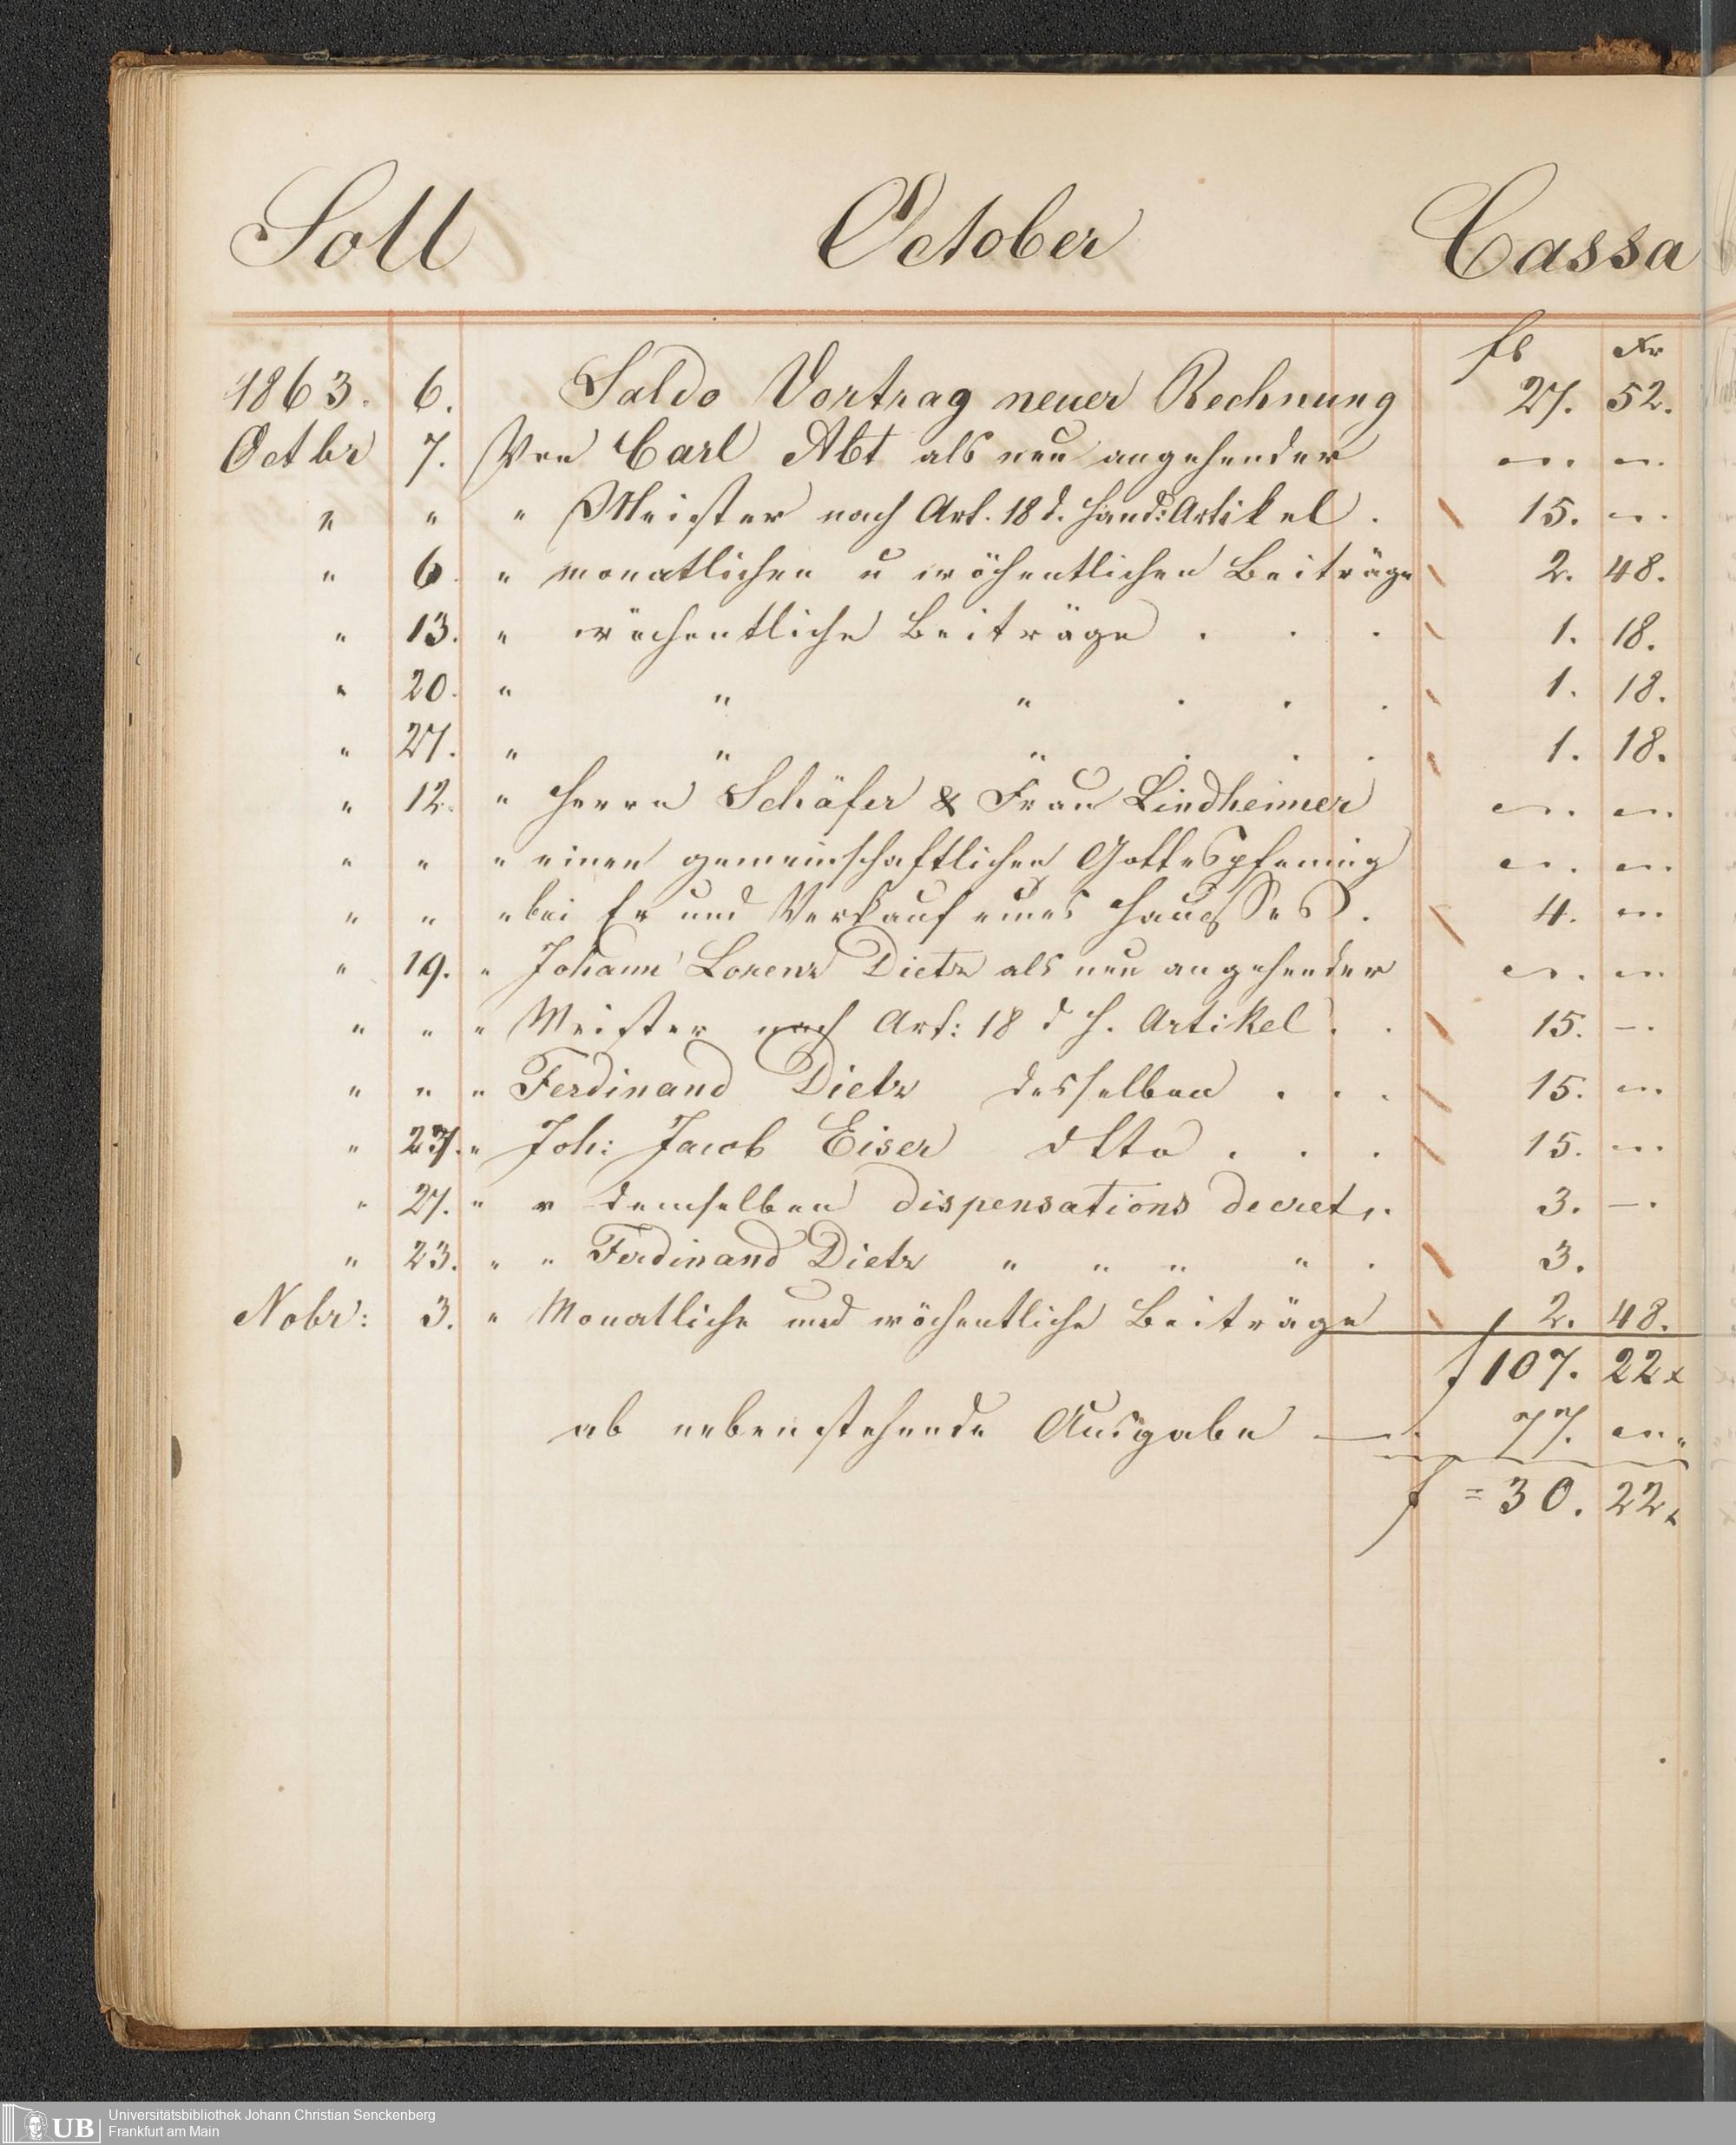 Soll October Cassa
fl Xr
1863. 6. Saldo Vortrag neuer Rechnung 27. 52.
Octbr 7. Von Carl Abt als neu angehender — . — .
" " " Meister nach Art. 18 d. Hand: Artikel . 15. — .
" 6. " monatlichen u wöchentlichen Beiträge 2. 48.
" 13. " wöchentliche Beiträge . . . 1. 18.
" 20. " " " . . . 1. 18.
" 27. " " " . . . 1. 18.
" 12. " Herrn Schäfer & Frau Lindheimer — . — .
" " " einen gemeinschaftlichen Gottespfennig — . — .
" " " bei Er und Verkauf eines Hausses . 4. — .
" 19. " Johann Lorenz Dietz als neu angehender — . — .
" " " Meister nach Art: 18 d H. Artikel . . 15. — .
" " " Ferdinand Dietz desselben . . . 15. — .
" 27. " Joh: Jacob Eiser dtto . . . 15. — .
" 27. " " demselben dispensations decret . 3. — .
" 23. " " Ferdinand Dietz " " " " . 3.
Nobr: 3. " Monatliche und wöchentliche Beiträge 2. 48.
f 107. 22 x
ab nebenstehende Ausgabe — . 77. — "
f = 30. 22 x
UB Universitätsbibliothek Johann Christian Senckenberg
Frankfurt am Main